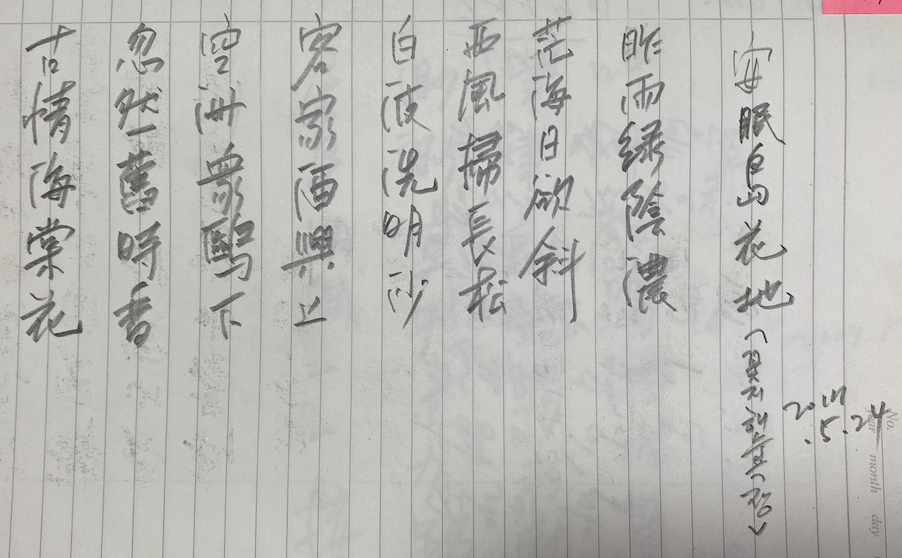 2017.5.24
安眠島花地(꽃지해수욕장)
昨雨綠陰濃
茫海日欲斜
西風掃長松
白波洗明沙
客家酒興上
空洲衆鷗下
忽然舊時香
古情海棠花
No.
month day